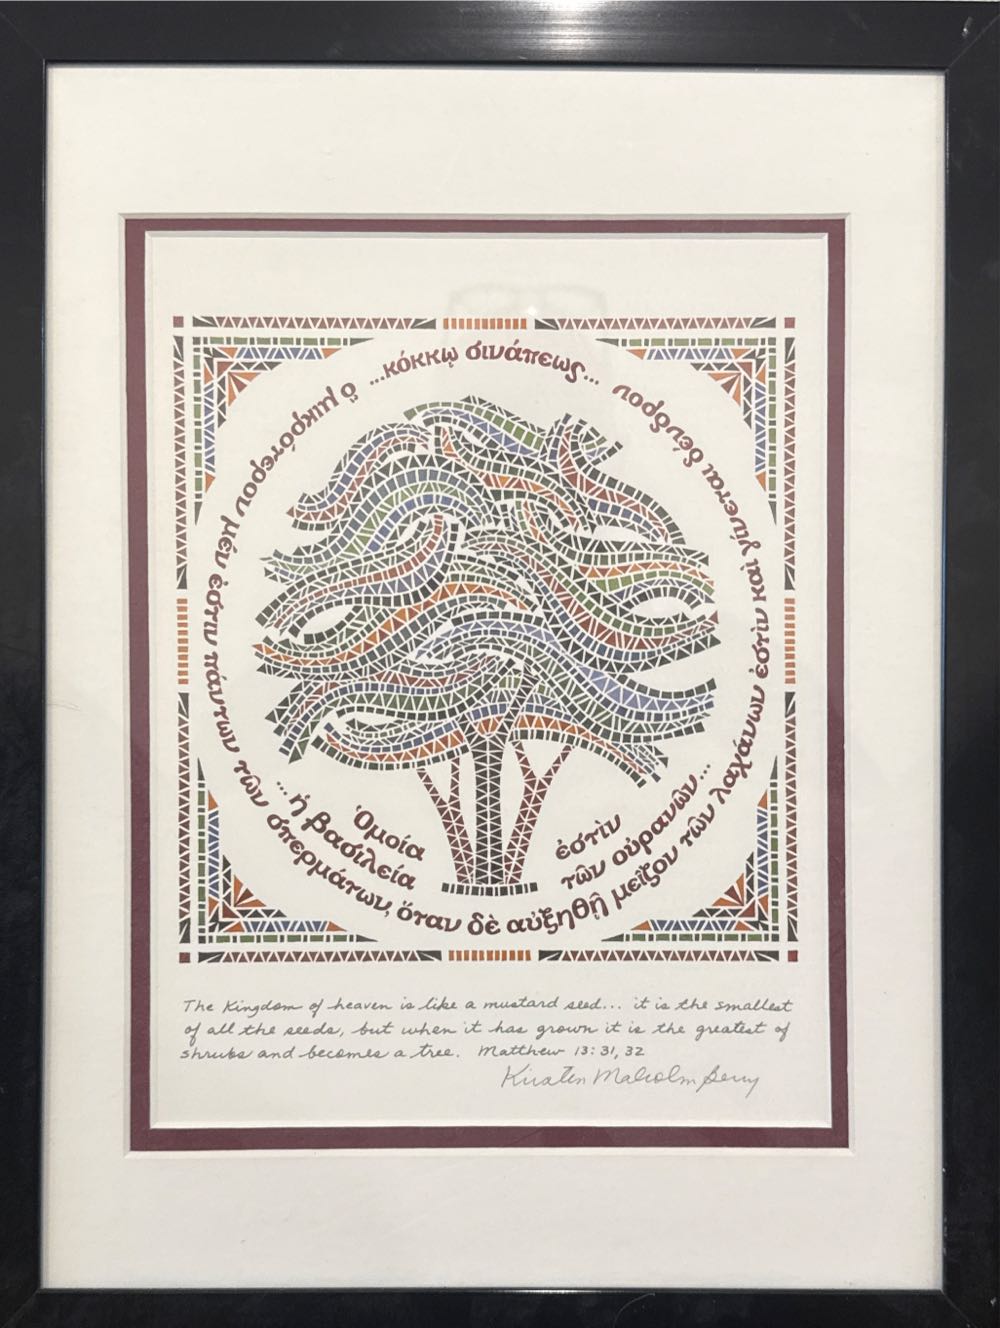 Ὁμοία ἐστὶν
...ἡ βασιλεία τῶν οὐρανῶν...
...κόκκῳ σινάπεως...
ὃ μικρότερον μέν ἐστιν πάντων τῶν σπερμάτων, ὅταν δὲ αὐξηθῇ μεῖζον τῶν λαχάνων ἐστὶν καὶ γίνεται δένδρον
The Kingdom of heaven is like a mustard seed... it is the smallest
of all the seeds, but when it has grown it is the greatest of
shrubs and becomes a tree. Matthew 13:31, 32
Kirsten Malcolm Berry